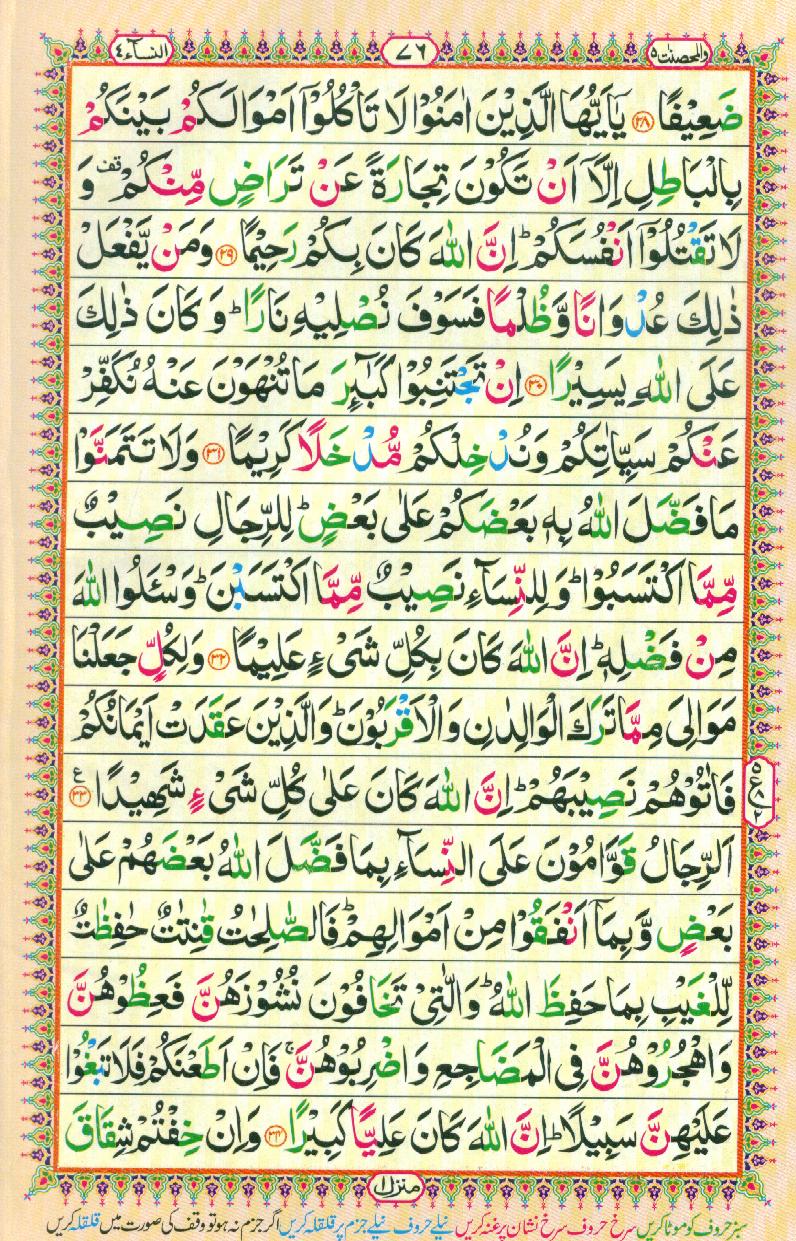 والمحصنت ٥ ٧٦ النسآء ٤
ضَعِيْفًا ﴿٢٨﴾ يٰۤاَيُّهَا الَّذِيْنَ اٰمَنُوْا لَا تَاْكُلُوْۤا اَمْوَالَكُمْ بَيْنَكُمْ
بِالْبَاطِلِ اِلَّاۤ اَنْ تَكُوْنَ تِجَارَةً عَنْ تَرَاضٍ مِّنْكُمْ قف وَ
لَا تَقْتُلُوْۤا اَنْفُسَكُمْ ؕ اِنَّ اللّٰهَ كَانَ بِكُمْ رَحِيْمًا ﴿٢٩﴾ وَمَنْ يَّفْعَلْ
ذٰلِكَ عُدْوَانًا وَّظُلْمًا فَسَوْفَ نُصْلِيْهِ نَارًا ؕ وَكَانَ ذٰلِكَ
عَلَى اللّٰهِ يَسِيْرًا ﴿٣٠﴾ اِنْ تَجْتَنِبُوْا كَبَآئِرَ مَا تُنْهَوْنَ عَنْهُ نُكَفِّرْ
عَنْكُمْ سَيِّاٰتِكُمْ وَنُدْخِلْكُمْ مُّدْخَلًا كَرِيْمًا ﴿٣١﴾ وَلَا تَتَمَنَّوْا
مَا فَضَّلَ اللّٰهُ بِهٖ بَعْضَكُمْ عَلٰى بَعْضٍ ؕ لِلرِّجَالِ نَصِيْبٌ
مِّمَّا اكْتَسَبُوْا ؕ وَلِلنِّسَآءِ نَصِيْبٌ مِّمَّا اكْتَسَبْنَ ؕ وَسْـَٔلُوا اللّٰهَ
مِنْ فَضْلِهٖ ؕ اِنَّ اللّٰهَ كَانَ بِكُلِّ شَىْءٍ عَلِيْمًا ﴿٣٢﴾ وَلِكُلٍّ جَعَلْنَا
مَوَالِىَ مِمَّا تَرَكَ الْوَالِدٰنِ وَالْاَقْرَبُوْنَ ؕ وَالَّذِيْنَ عَقَدَتْ اَيْمَانُكُمْ
فَاٰتُوْهُمْ نَصِيْبَهُمْ ؕ اِنَّ اللّٰهَ كَانَ عَلٰى كُلِّ شَىْءٍ شَهِيْدًا ﴿٣٣﴾ ع
اَلرِّجَالُ قَوَّامُوْنَ عَلَى النِّسَآءِ بِمَا فَضَّلَ اللّٰهُ بَعْضَهُمْ عَلٰى
بَعْضٍ وَّبِمَاۤ اَنْفَقُوْا مِنْ اَمْوَالِهِمْ ؕ فَالصّٰلِحٰتُ قٰنِتٰتٌ حٰفِظٰتٌ
لِّلْغَيْبِ بِمَا حَفِظَ اللّٰهُ ؕ وَالّٰتِىْ تَخَافُوْنَ نُشُوْزَهُنَّ فَعِظُوْهُنَّ
وَاهْجُرُوْهُنَّ فِى الْمَضَاجِعِ وَاضْرِبُوْهُنَّ ۚ فَاِنْ اَطَعْنَكُمْ فَلَا تَبْغُوْا
عَلَيْهِنَّ سَبِيْلًا ؕ اِنَّ اللّٰهَ كَانَ عَلِيًّا كَبِيْرًا ﴿٣٤﴾ وَاِنْ خِفْتُمْ شِقَاقَ
منزل ١
سبز حروف کو موٹا کریں سرخ حروف سرخ نشان پر غنہ کریں نیلے حروف نیلے جزم پر قلقلہ کریں اگر جزم نہ ہو تو وقف کی صورت میں قلقلہ کریں